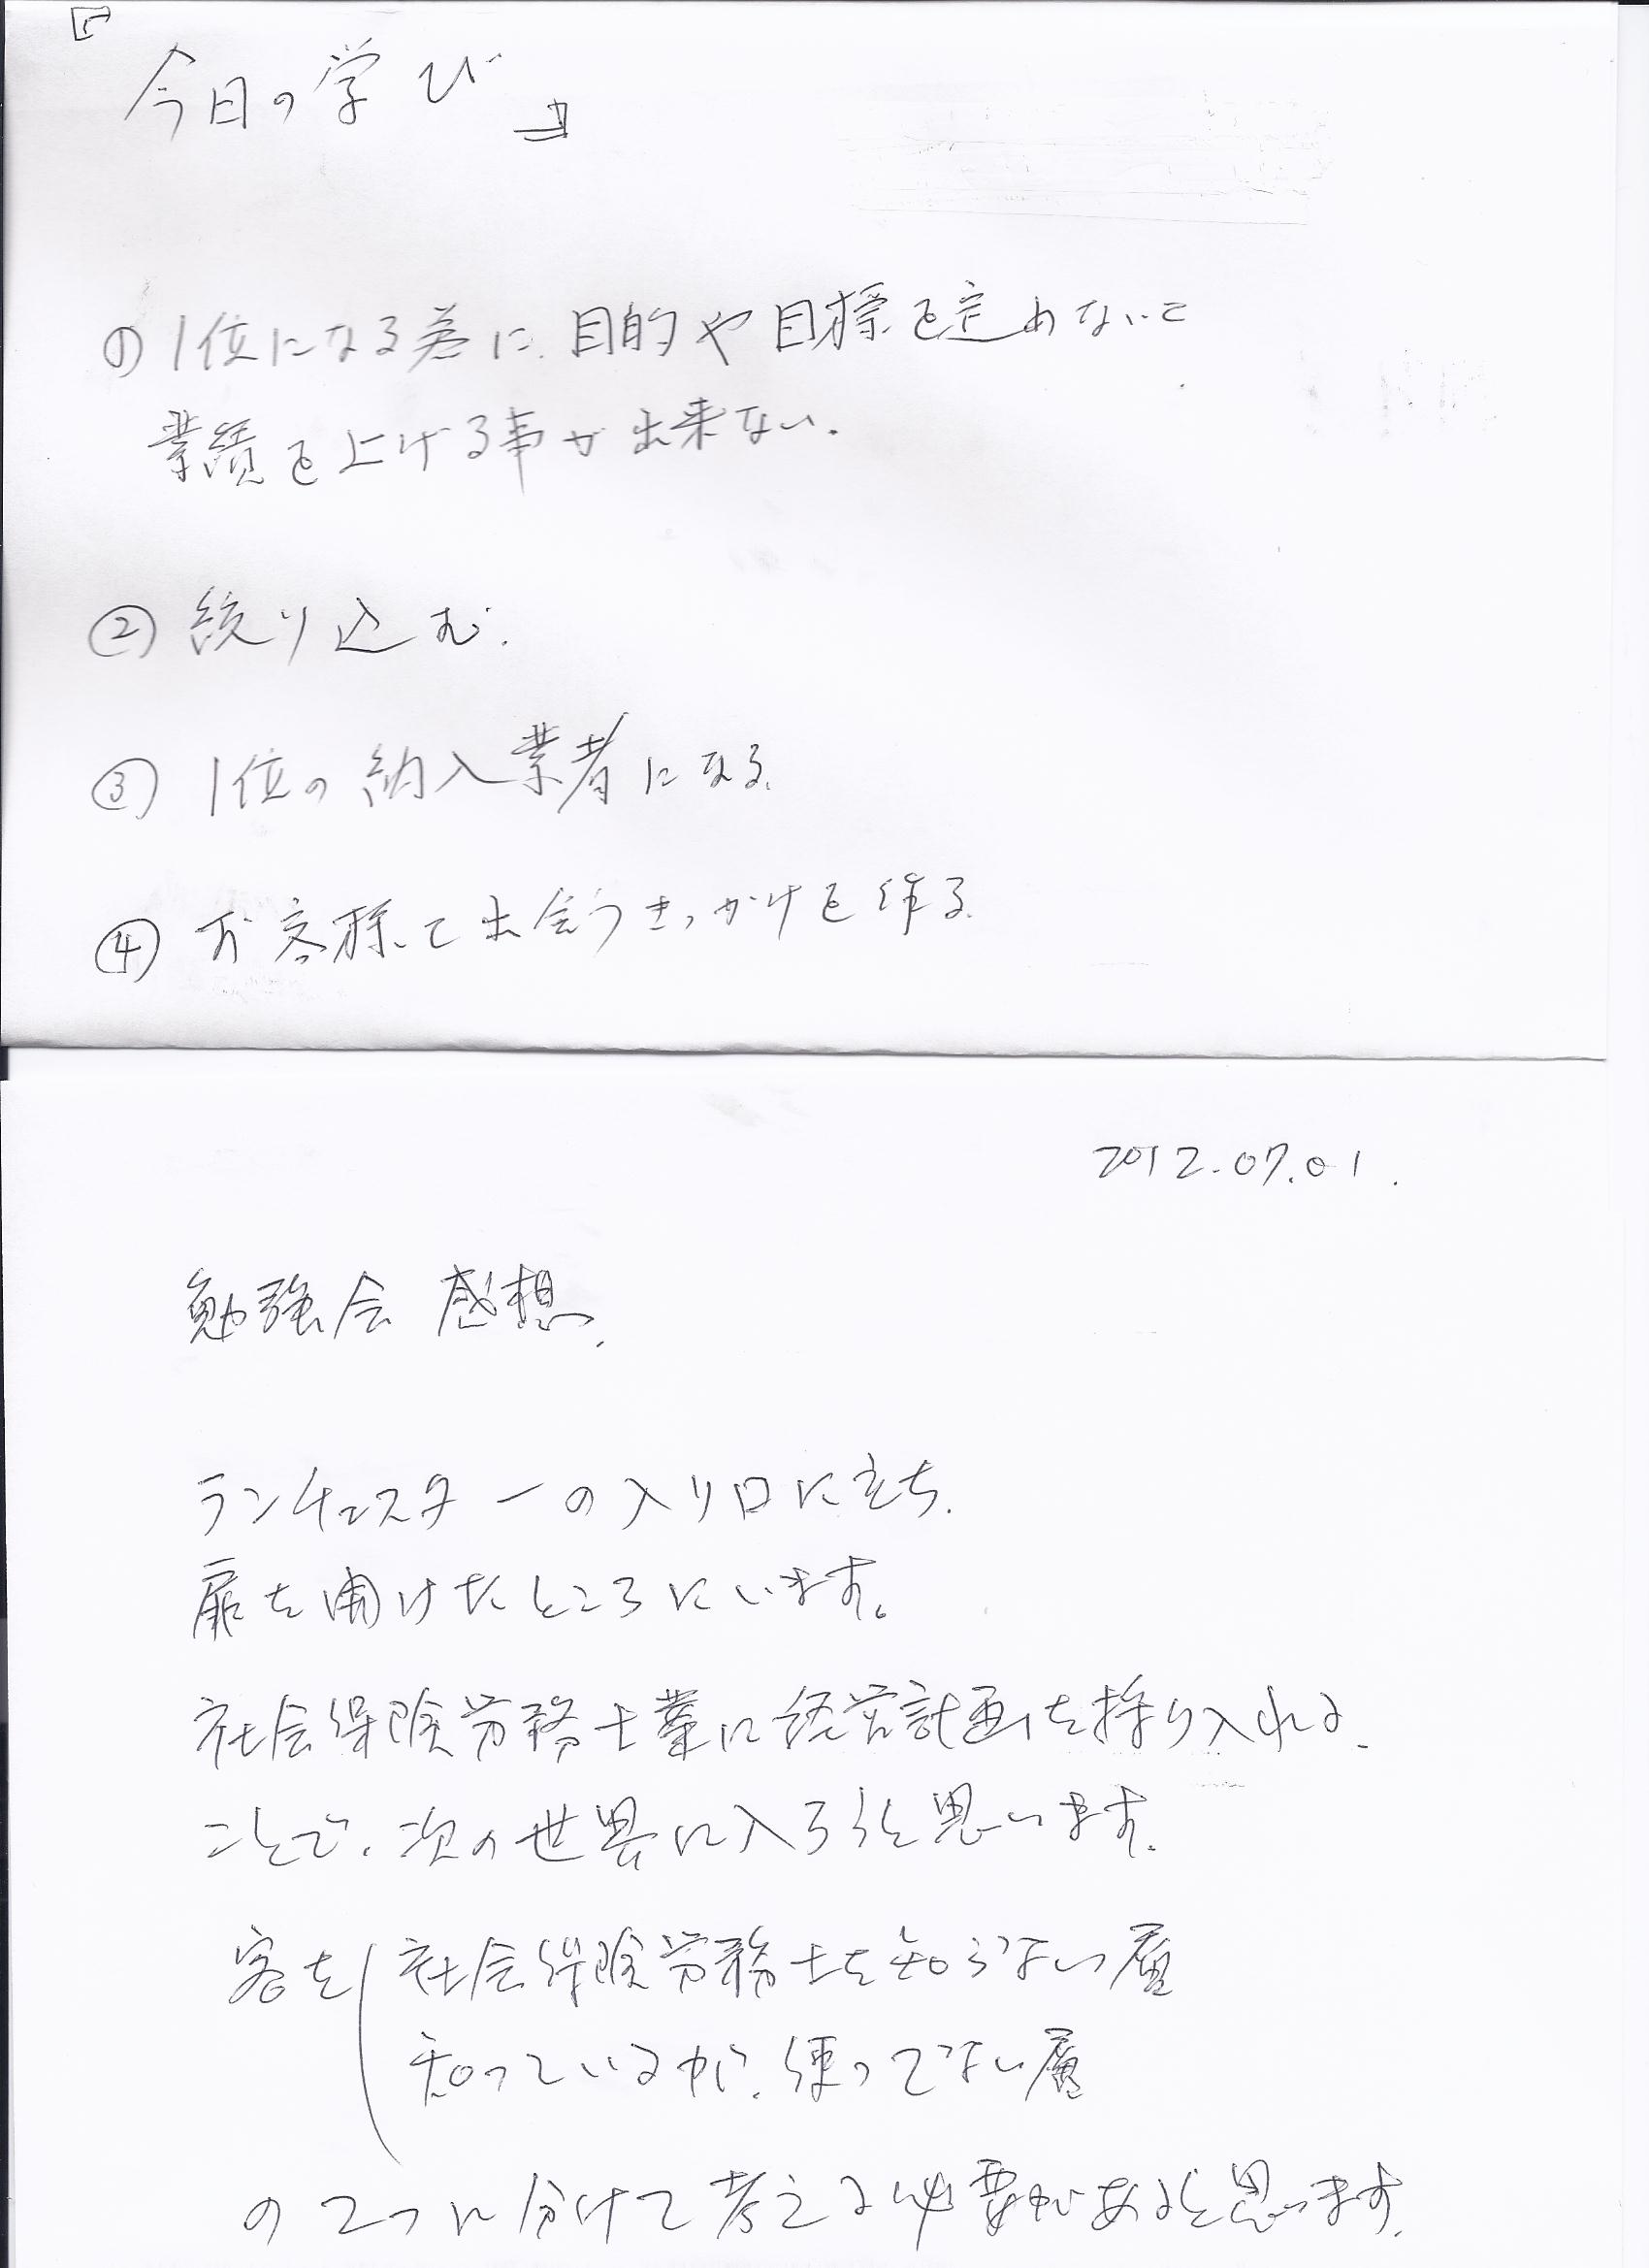 『今日の学び』
① 1位になる為に、目的や目標を定めないと
業績を上げる事が出来ない.
② 絞り込む.
③ 1位の納入業者になる.
④ お客様と出会うきっかけを作る.
2012.07.01.
勉強会 感想.
ランチェスターの入り口に立ち.
扉を開けたところにいます。
社会保険労務士業に経営計画を採り入れる.
ことで、次の世界に入ろうと思います.
客を 社会保険労務士を知らない層
知っているが、使ってない層
の2つに分けて考える必要があると思います.